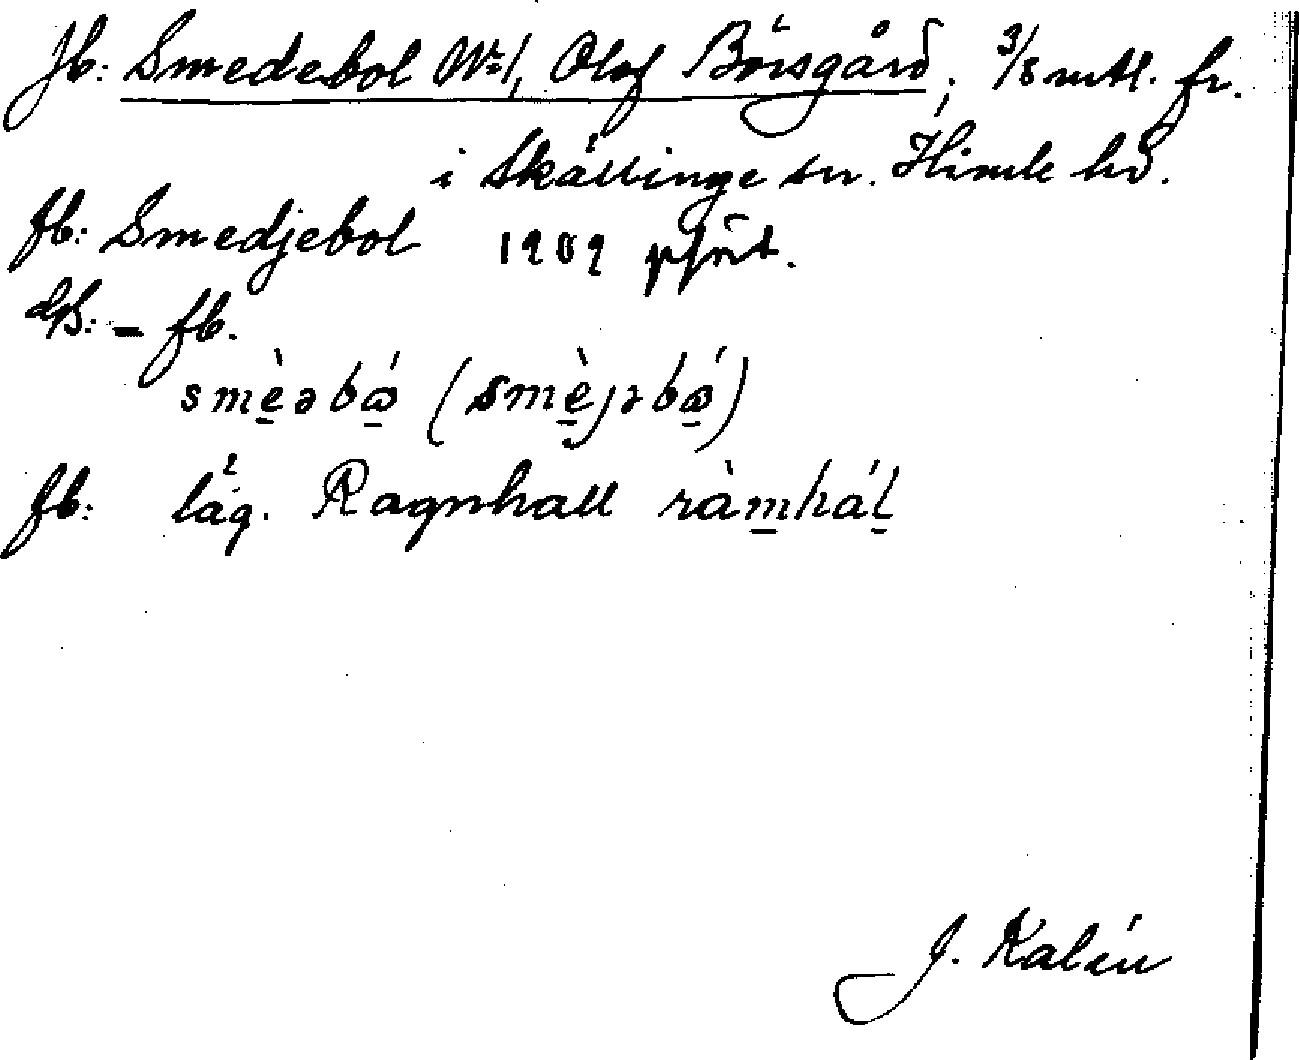 Jb: Smedebol Nr 1, Olof Börsgård; 3/8 mtl. fr.
i Skällinge sn. Himle hd.
fb: Smedjebol 1909
dfb: – fb.
smè̱əbɷ̱́ (smè̱jəbɷ̱́)
fb: läg. Ragnhall ràm̱háḻ
J. Kalén